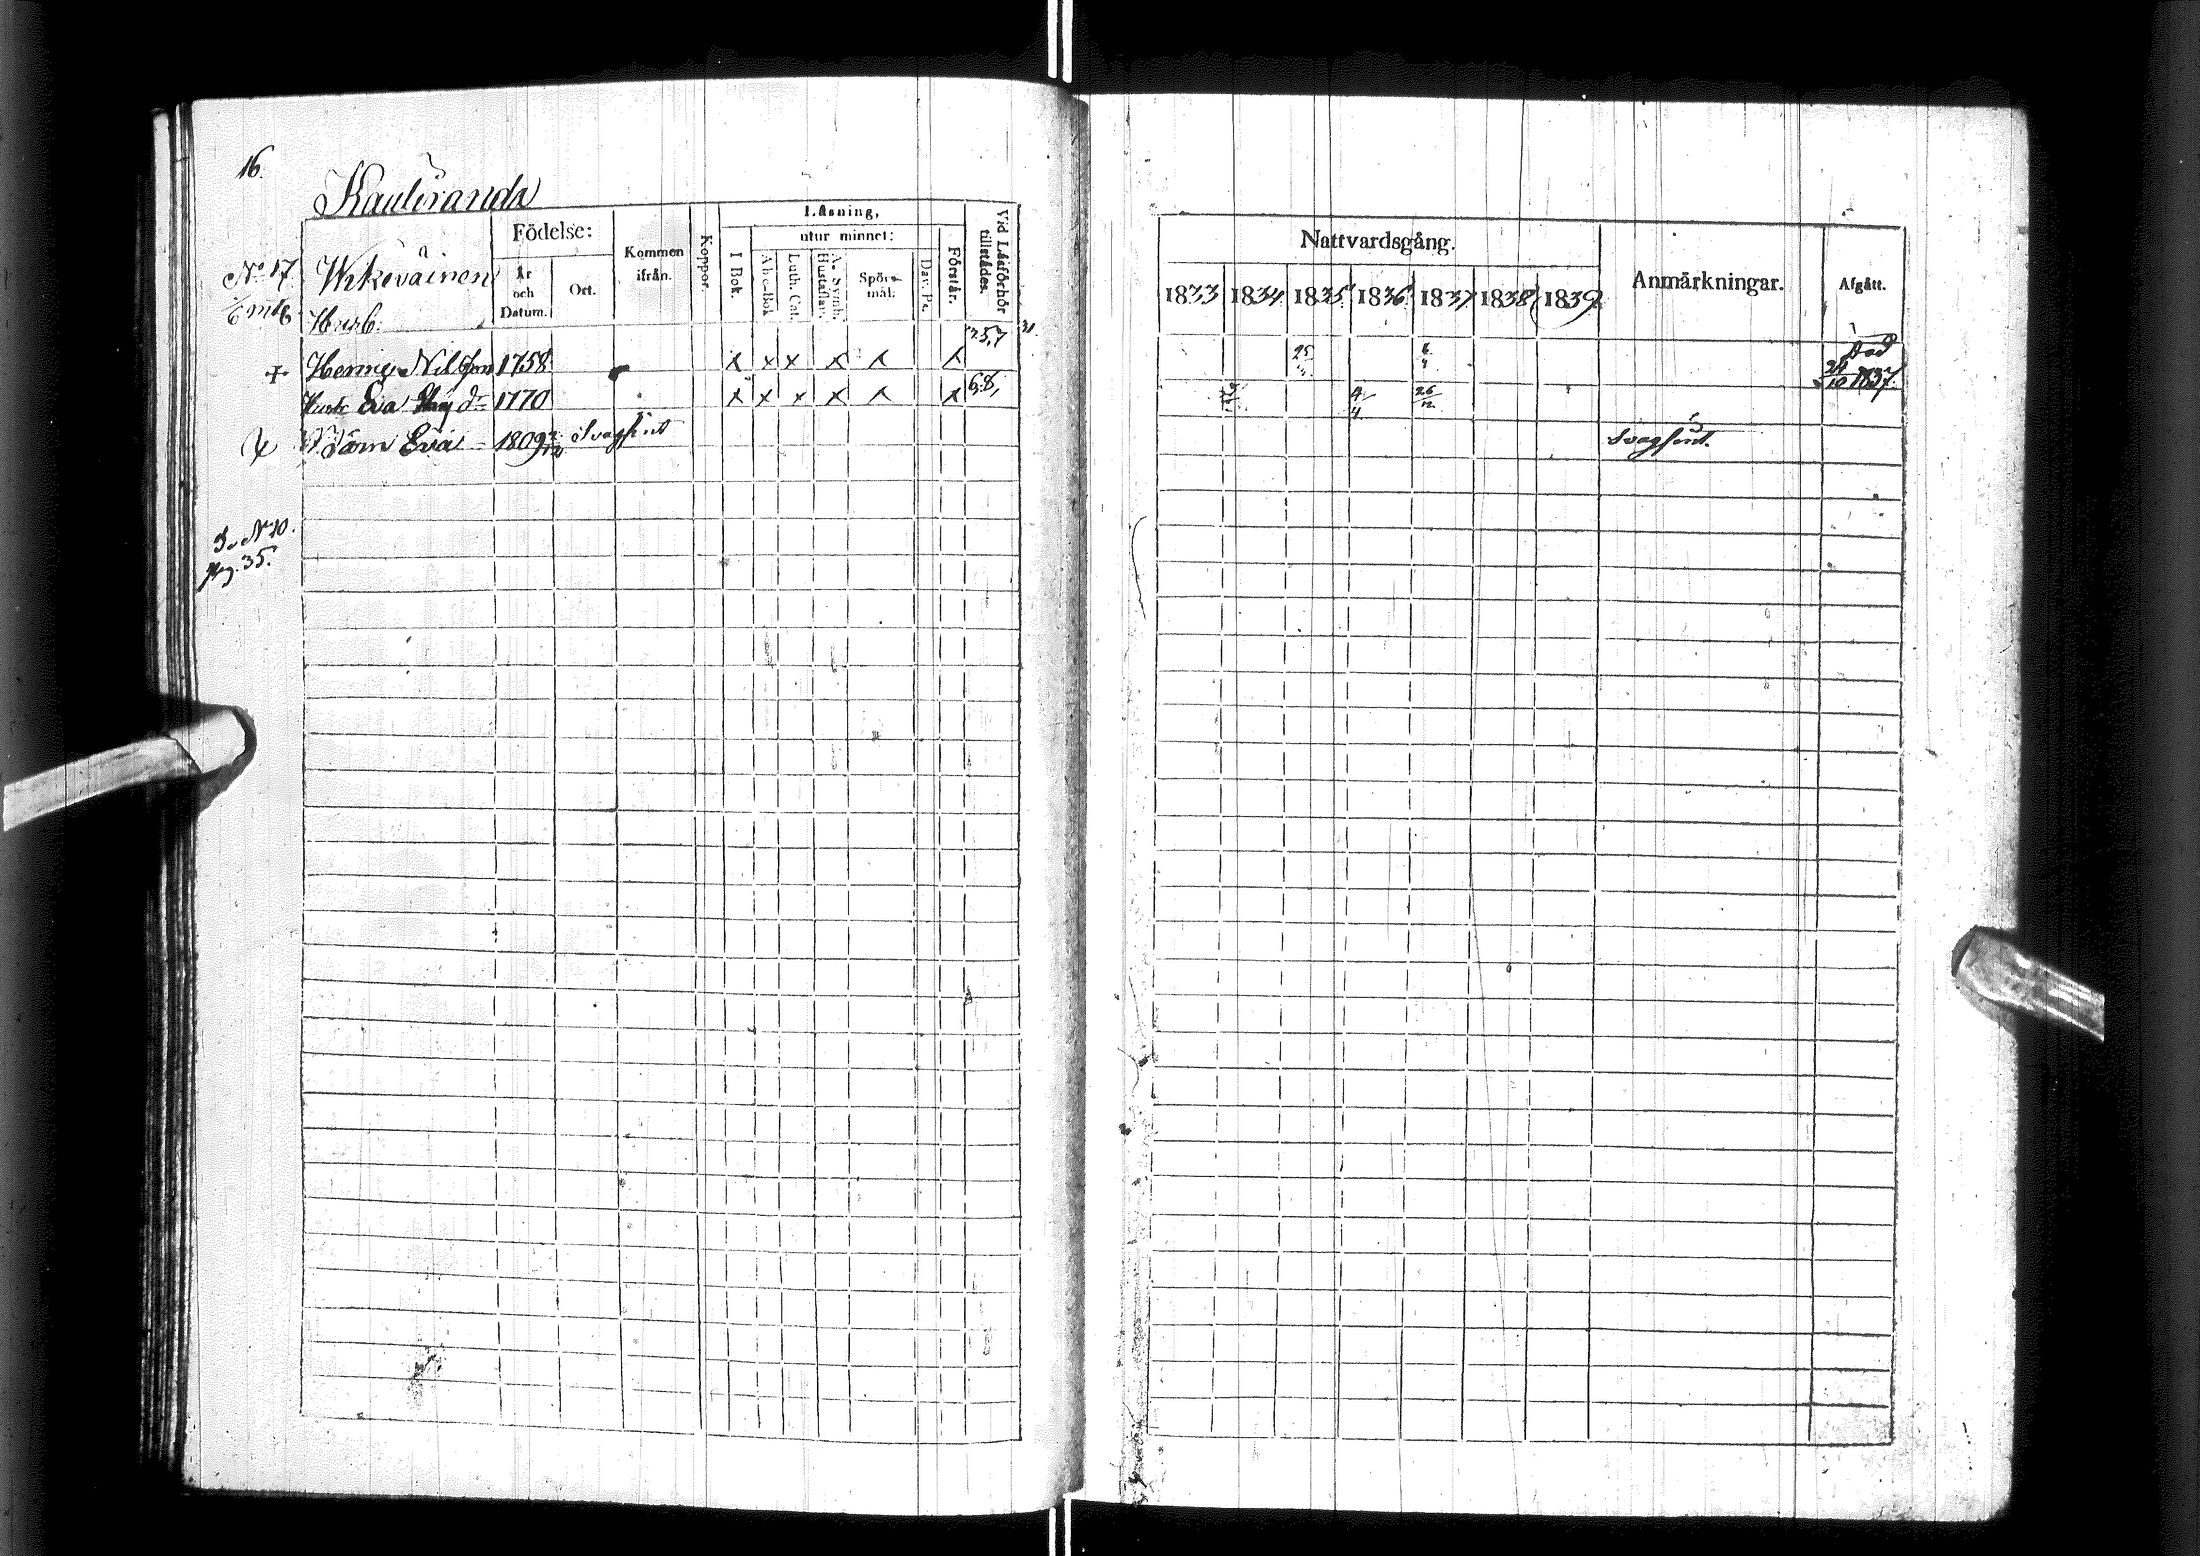 16.
Kauliranda
No 17.
Wekeväinen
Husb:
Födelse:
År och Datum.
Ort.
Kommen ifrån.
Koppor.
Läsning,
I Bok.
utur minnet:
Abc-Bok
Luth. Cat.
A. Symb. Hustaflan.
Spörsmål:
Dav. Ps.
Förstår.
Vid Läsförhör tillstädes.
Nattvardsgång.
1833 1834 1835 1836 1837 1838 1839
Anmärkningar.
Afgått.
+ Henric Nilsson 1758 x x x x x x 35,7 25 Död 24/10 1837.
Hust. Eva Stig dr 1770 x x x x x x 6.8, 4/4 26/12
Eva 1809 Svagsint Svagsint.
S. No 10.
pag. 35.